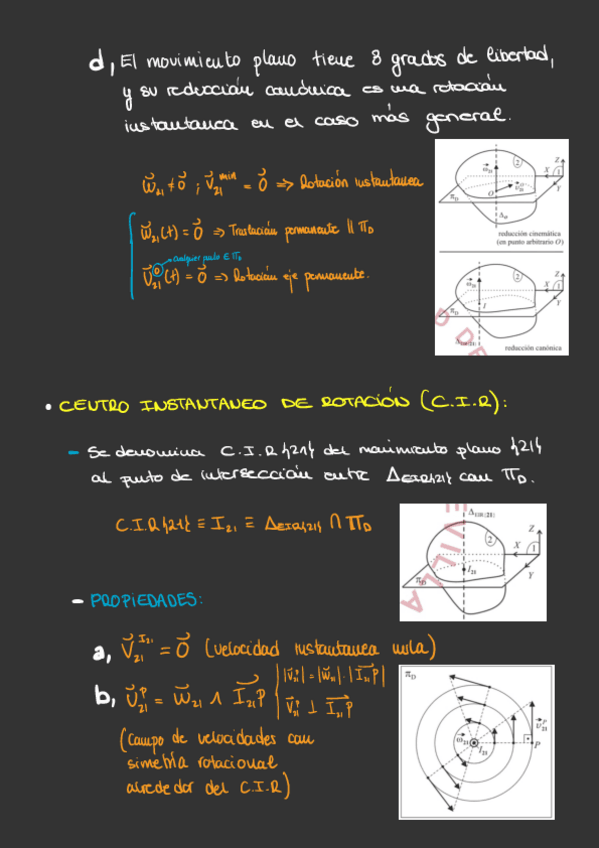 d, El movimiento plano tiene 3 grados de libertad,
y su reducción canónica es una rotación
instantanea en el caso más general.
ω⃗₂₁ ≠ 0⃗ ; v⃗₂₁ᵐⁱⁿ = 0⃗ => Rotación instantanea
ω⃗₂₁(t) = 0⃗ => Traslación permanente || π_D
cualquier punto ∈ π_D
v⃗₂₁⁰(t) = 0⃗ => Rotación eje permanente.
reducción cinemática
(en punto arbitrario O)
reducción canónica
• CENTRO INSTANTANEO DE ROTACIÓN (C.I.R):
- Se denomina C.I.R {21} del movimiento plano {21}
al punto de intersección entre Δ_EIR{21} con π_D.
C.I.R{21} ≡ I₂₁ ≡ Δ_EIR{21} ∩ π_D
EVILLA
- PROPIEDADES:
a, v⃗₂₁^I₂₁ = 0⃗ (velocidad instantanea nula)
b, v⃗₂₁ᴾ = ω⃗₂₁ ∧ I₂₁P⃗
|v⃗₂₁ᴾ| = |ω⃗₂₁| · |I₂₁P⃗|
v⃗₂₁ᴾ ⊥ I₂₁P⃗
(Campo de velocidades con
simetría rotacional
alrededor del C.I.R)
π_D
ω⃗₂₁ I₂₁ P v⃗₂₁ᴾ